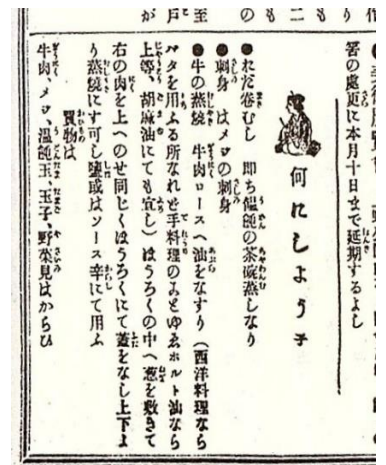 署の處更に本月十日まで延期するよし
何にしよう子
●おだ巻むし 即ち饂飩の茶碗蒸しなり
●刺身 はメロの刺身
●牛の蒸焼 牛肉ロースへ油をなすり(西洋料理なら
バタを用ふる所なれど手料理のことゆゑホルト油なら
上等、胡麻油にても宜し)ほうろくの中へ葱を敷きて
右の肉を上へのせ同じくほうろくにて蓋をなし上下よ
り蒸焼にす可し鹽或はソース辛にて用ふ
買物は
牛肉、メロ、饂飩玉、玉子、野菜見はからひ